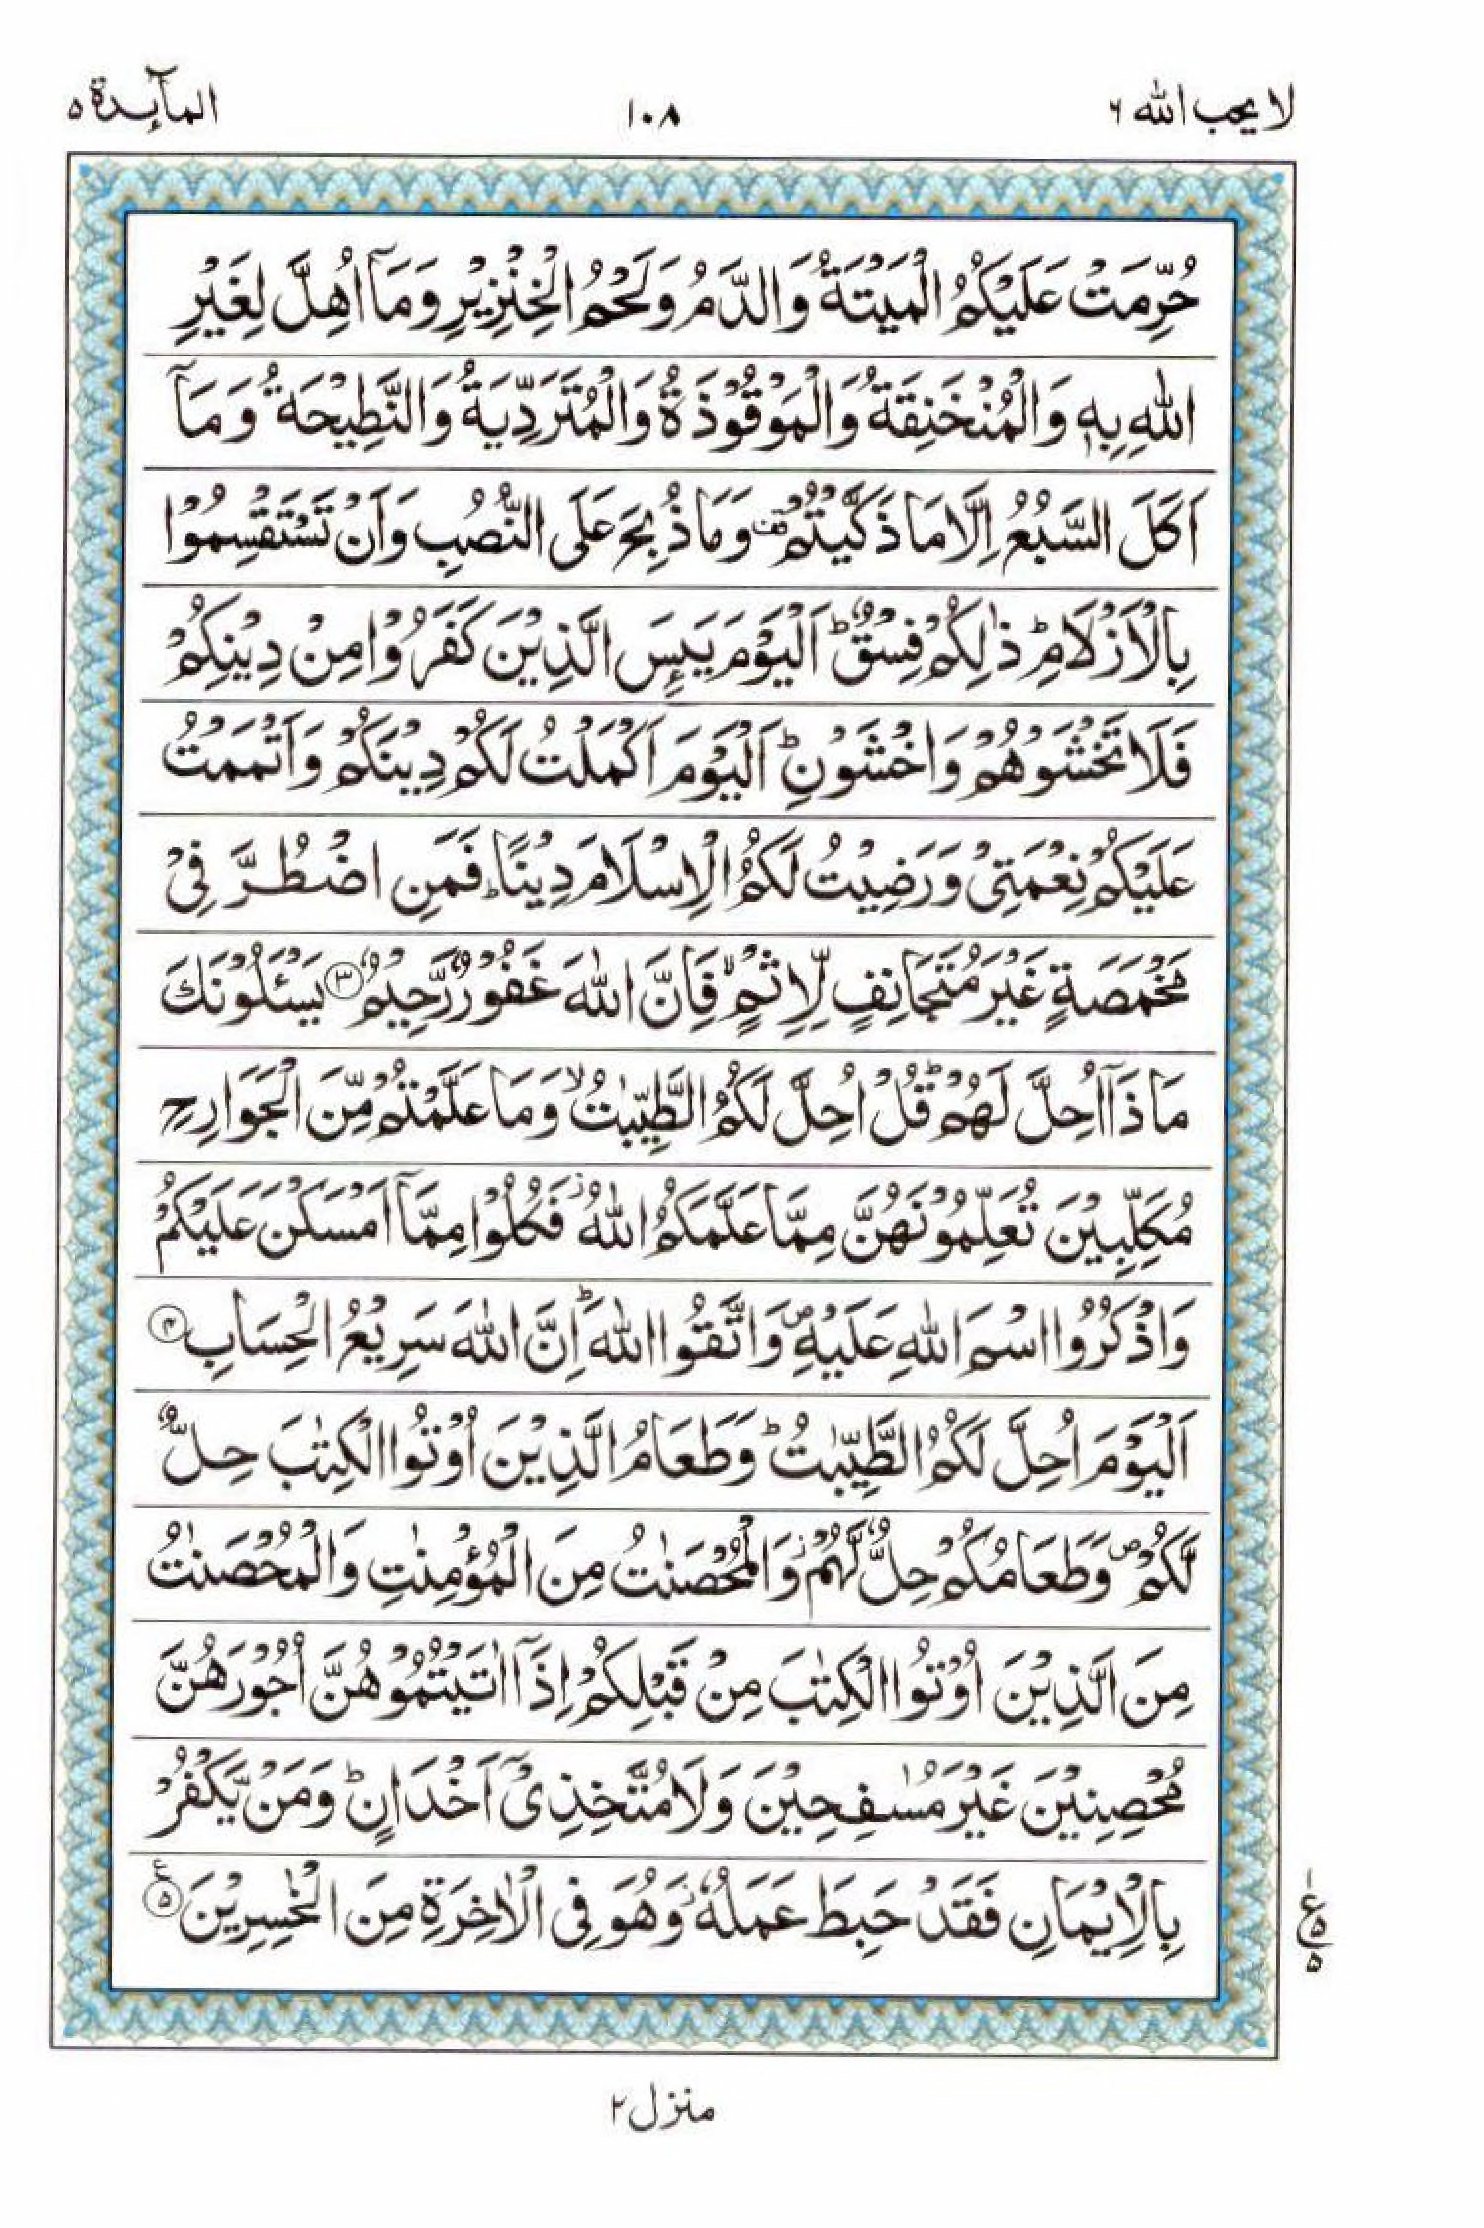 لا يحب الله ٦
١٠٨
المآئدة ٥
حُرِّمَتْ عَلَيْكُمُ الْمَيْتَةُ وَالدَّمُ وَلَحْمُ الْخِنْزِيْرِ وَمَآ اُهِلَّ لِغَيْرِ
اللّٰهِ بِهٖ وَالْمُنْخَنِقَةُ وَالْمَوْقُوْذَةُ وَالْمُتَرَدِّيَةُ وَالنَّطِيْحَةُ وَمَآ
اَكَلَ السَّبُعُ اِلَّا مَا ذَكَّيْتُمْ ۫ وَمَا ذُبِحَ عَلَى النُّصُبِ وَاَنْ تَسْتَقْسِمُوْا
بِالْاَزْلَامِ ؕ ذٰلِكُمْ فِسْقٌ ؕ اَلْيَوْمَ يَىِٕسَ الَّذِيْنَ كَفَرُوْا مِنْ دِيْنِكُمْ
فَلَا تَخْشَوْهُمْ وَاخْشَوْنِ ؕ اَلْيَوْمَ اَكْمَلْتُ لَكُمْ دِيْنَكُمْ وَاَتْمَمْتُ
عَلَيْكُمْ نِعْمَتِيْ وَرَضِيْتُ لَكُمُ الْاِسْلَامَ دِيْنًا ؕ فَمَنِ اضْطُرَّ فِيْ
مَخْمَصَةٍ غَيْرَ مُتَجَانِفٍ لِّاِثْمٍ ۙ فَاِنَّ اللّٰهَ غَفُوْرٌ رَّحِيْمٌ ۝٣ يَسْـَٔلُوْنَكَ
مَاذَآ اُحِلَّ لَهُمْ ؕ قُلْ اُحِلَّ لَكُمُ الطَّيِّبٰتُ ۙ وَمَا عَلَّمْتُمْ مِّنَ الْجَوَارِحِ
مُكَلِّبِيْنَ تُعَلِّمُوْنَهُنَّ مِمَّا عَلَّمَكُمُ اللّٰهُ ؗ فَكُلُوْا مِمَّآ اَمْسَكْنَ عَلَيْكُمْ
وَاذْكُرُوا اسْمَ اللّٰهِ عَلَيْهِ ۪ وَاتَّقُوا اللّٰهَ ؕ اِنَّ اللّٰهَ سَرِيْعُ الْحِسَابِ ۝٤
اَلْيَوْمَ اُحِلَّ لَكُمُ الطَّيِّبٰتُ ؕ وَطَعَامُ الَّذِيْنَ اُوْتُوا الْكِتٰبَ حِلٌّ
لَّكُمْ ۪ وَطَعَامُكُمْ حِلٌّ لَّهُمْ ؗ وَالْمُحْصَنٰتُ مِنَ الْمُؤْمِنٰتِ وَالْمُحْصَنٰتُ
مِنَ الَّذِيْنَ اُوْتُوا الْكِتٰبَ مِنْ قَبْلِكُمْ اِذَآ اٰتَيْتُمُوْهُنَّ اُجُوْرَهُنَّ
مُحْصِنِيْنَ غَيْرَ مُسٰفِحِيْنَ وَلَا مُتَّخِذِيْٓ اَخْدَانٍ ؕ وَمَنْ يَّكْفُرْ
بِالْاِيْمَانِ فَقَدْ حَبِطَ عَمَلُهٗ ؗ وَهُوَ فِي الْاٰخِرَةِ مِنَ الْخٰسِرِيْنَ ۝٥ ع
١
ع ٥
٥
منزل ٢